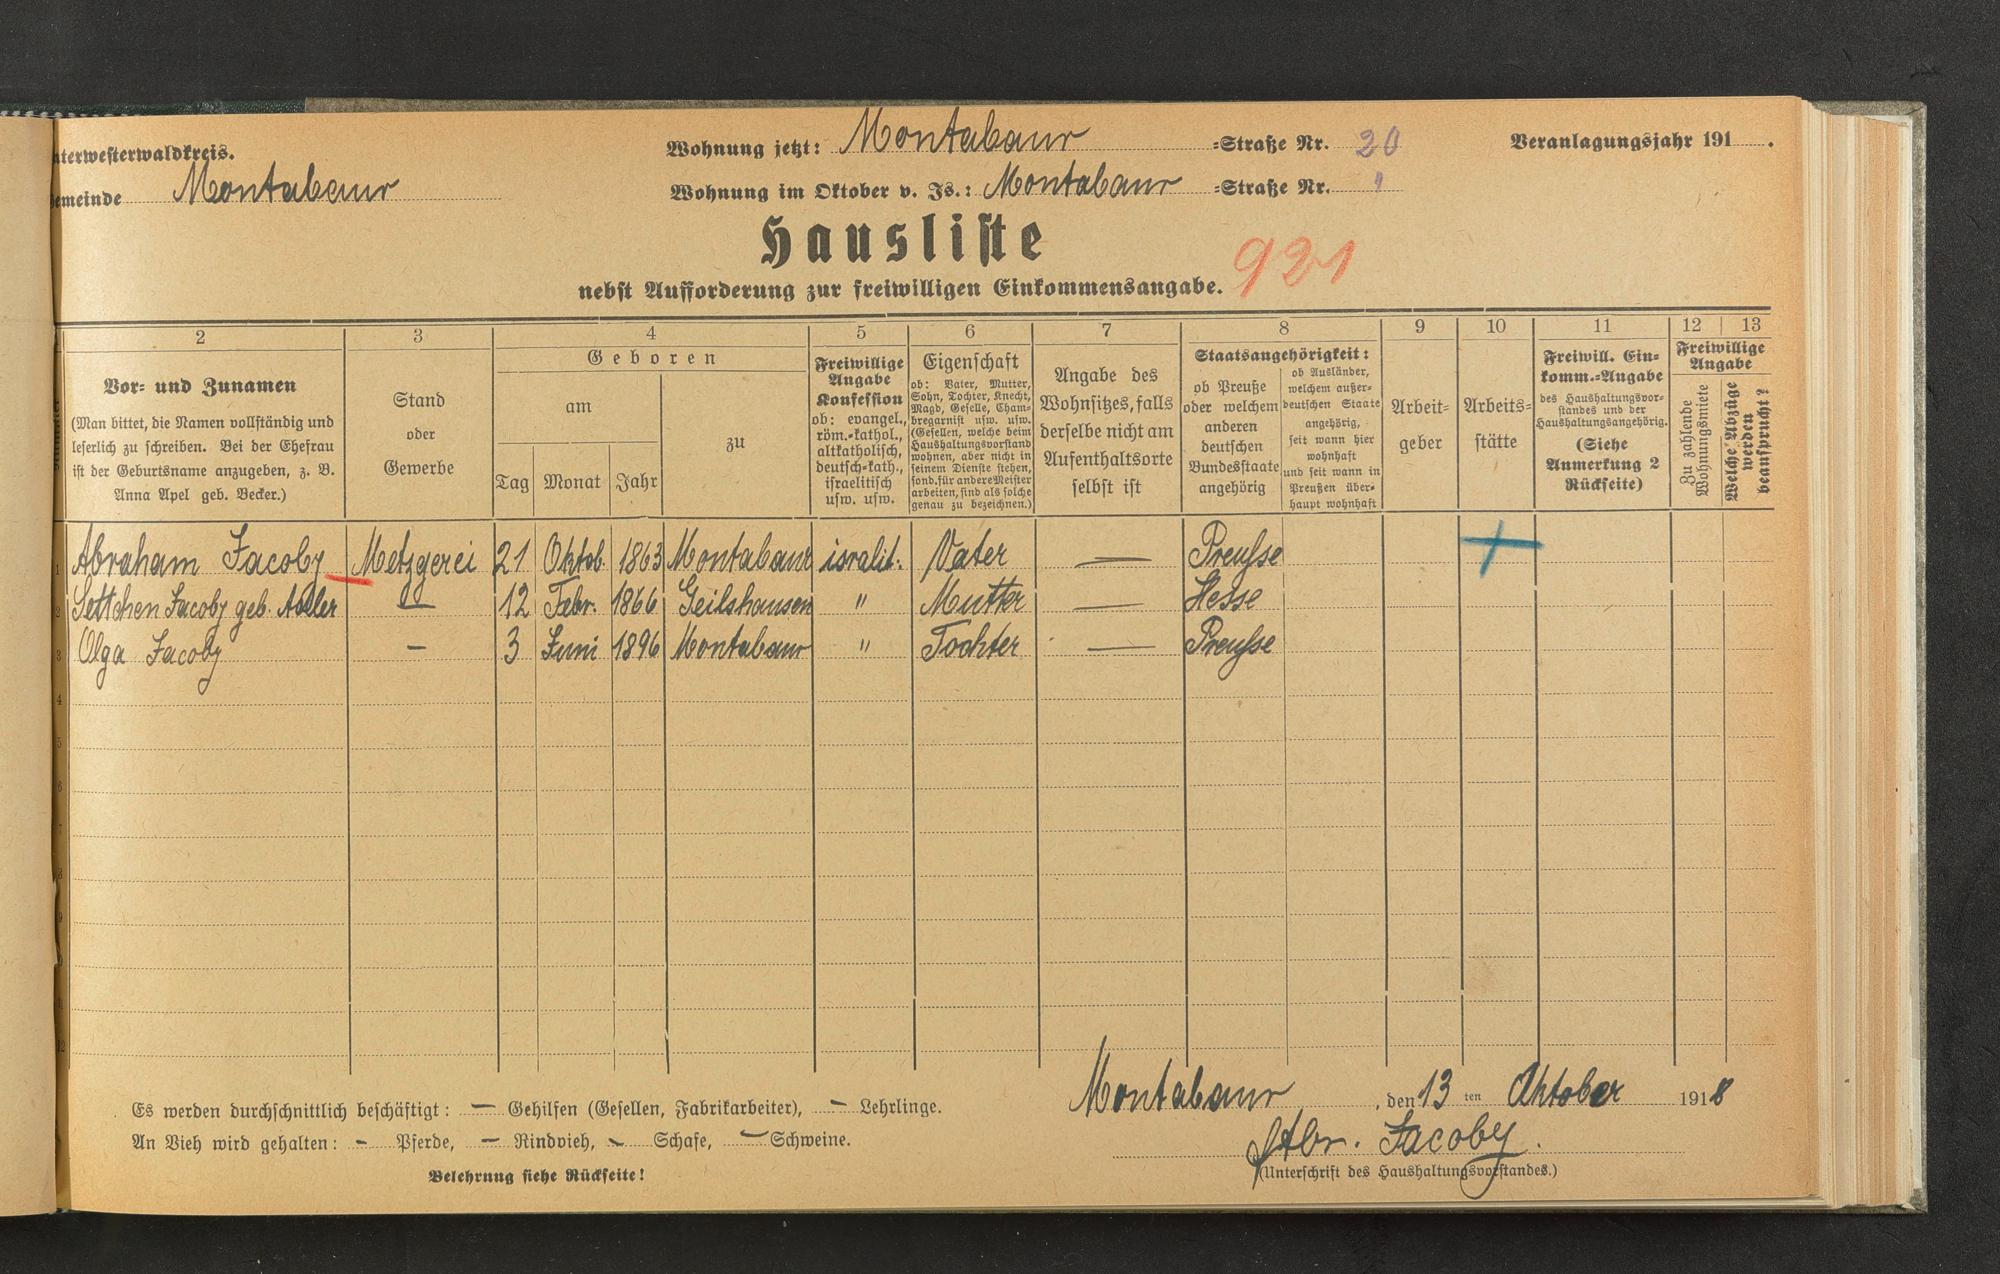 nterwesterwaldkreis.
Wohnung jetzt: Montabaur =Straße Nr. 20
Veranlagungsjahr 191 .
emeinde Montabaur
Wohnung im Oktober v. Js.: Montabaur =Straße Nr. "
Hausliste
921
nebst Aufforderung zur freiwilligen Einkommensangabe.
2 3 4 5 6 7 8 9 10 11 12 13
Vor- und Zunamen
(Man bittet, die Namen vollständig und
leserlich zu schreiben. Bei der Ehefrau
ist der Geburtsname anzugeben, z. B.
Anna Apel geb. Becker.)
Stand
oder
Gewerbe
Geboren
am
Tag Monat Jahr
zu
Freiwillige
Angabe
Konfession
ob: evangel.,
röm.=kathol.,
altkatholisch,
deutsch=kath.,
israelitisch
usw. usw.
Eigenschaft
ob: Vater, Mutter,
Sohn, Tochter, Knecht,
Magd, Geselle, Cham=
bregarnist usw. usw.
(Gesellen, welche beim
Haushaltungsvorstand
wohnen, aber nicht in
seinem Dienste stehen,
sond. für andere Meister
arbeiten, sind als solche
genau zu bezeichnen.)
Angabe des
Wohnsitzes, falls
derselbe nicht am
Aufenthaltsorte
selbst ist
Staatsangehörigkeit:
ob Preuße
oder welchem
anderen
deutschen
Bundesstaate
angehörig
ob Ausländer,
welchem außer=
deutschen Staate
angehörig,
seit wann hier
wohnhaft
und seit wann in
Preußen über=
haupt wohnhaft
Arbeit=
geber
Arbeits=
stätte
Freiwill. Ein=
komm.=Angabe
des Haushaltungsvor=
standes und der
Haushaltungsangehörig.
(Siehe
Anmerkung 2
Rückseite)
Freiwillige
Angabe
Zu zahlende
Wohnungsmiete
Welche Abzüge
werden
beansprucht?
1 Abraham Jacoby Metzgerei 21 Oktob. 1863 Montabaur isralit: Vater — Preusse
2 Settchen Jacoby geb. Adler — 12 Febr. 1866 Geilshausen " Mutter — Hesse
3 Olga Jacoby — 3 Juni 1896 Montabaur " Tochter — Preusse
4
5
6
7
8
9
12
Montabaur, den 13 ten Oktober 1918
Es werden durchschnittlich beschäftigt: — Gehilfen (Gesellen, Fabrikarbeiter), — Lehrlinge.
An Vieh wird gehalten: — Pferde, — Rindvieh, — Schafe, — Schweine.
Abr. Jacoby.
(Unterschrift des Haushaltungsvorstandes.)
Belehrung siehe Rückseite!